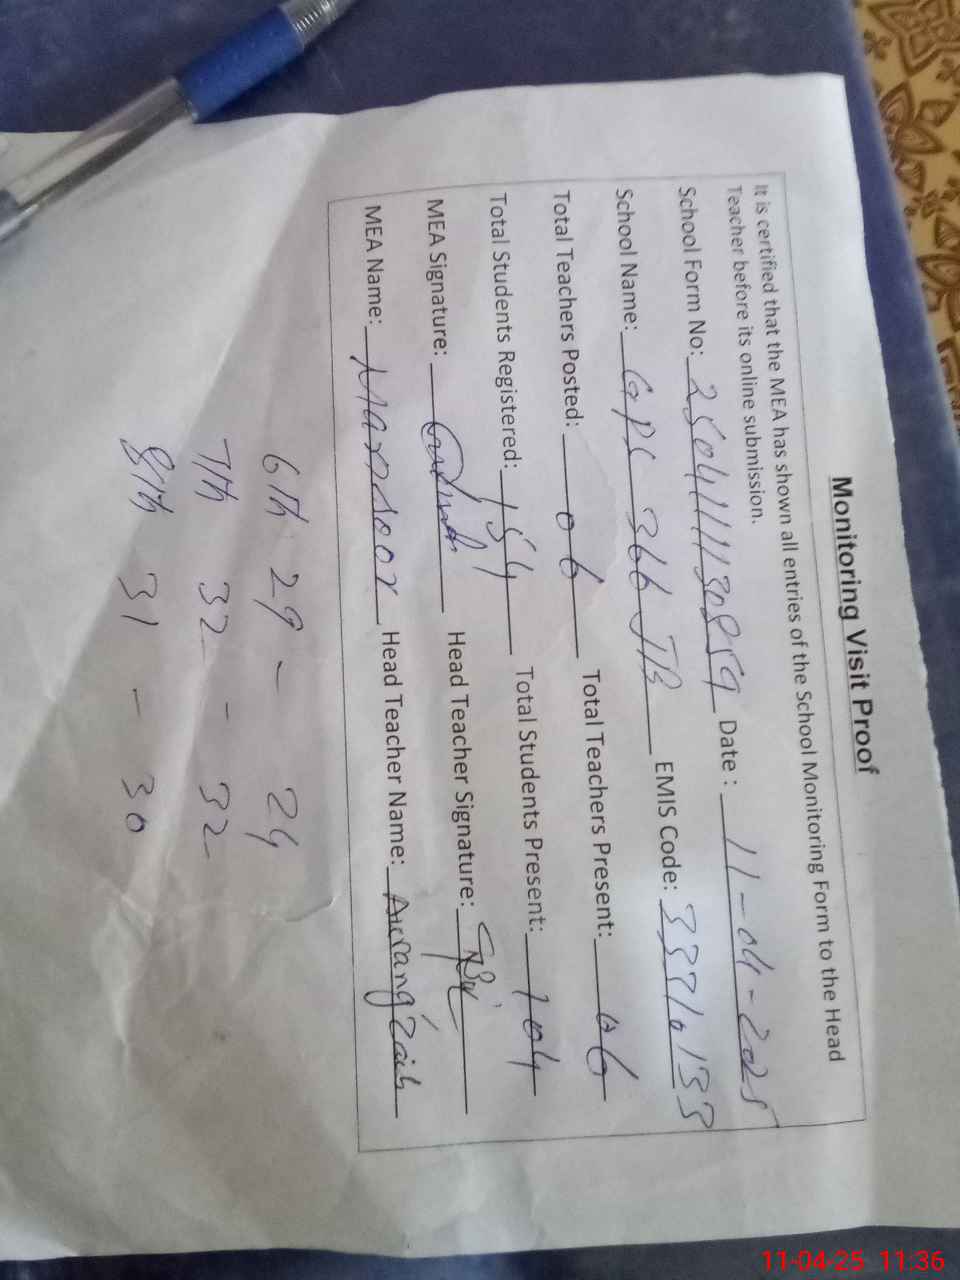 Monitoring Visit Proof
It is certified that the MEA has shown all entries of the School Monitoring Form to the Head
Teacher before its online submission.
School Form No: 2504111130859 Date : 11-04-2025
School Name: GPS 366 JB EMIS Code: 33710133
Total Teachers Posted: 06 Total Teachers Present: 06
Total Students Registered: 154 Total Students Present: 104
MEA Signature: Head Teacher Signature:
MEA Name: Manzoor Head Teacher Name: Aurangzaib
6th 29 - 24
7th 32 - 32
8th 31 - 30
11-04-25 11:36